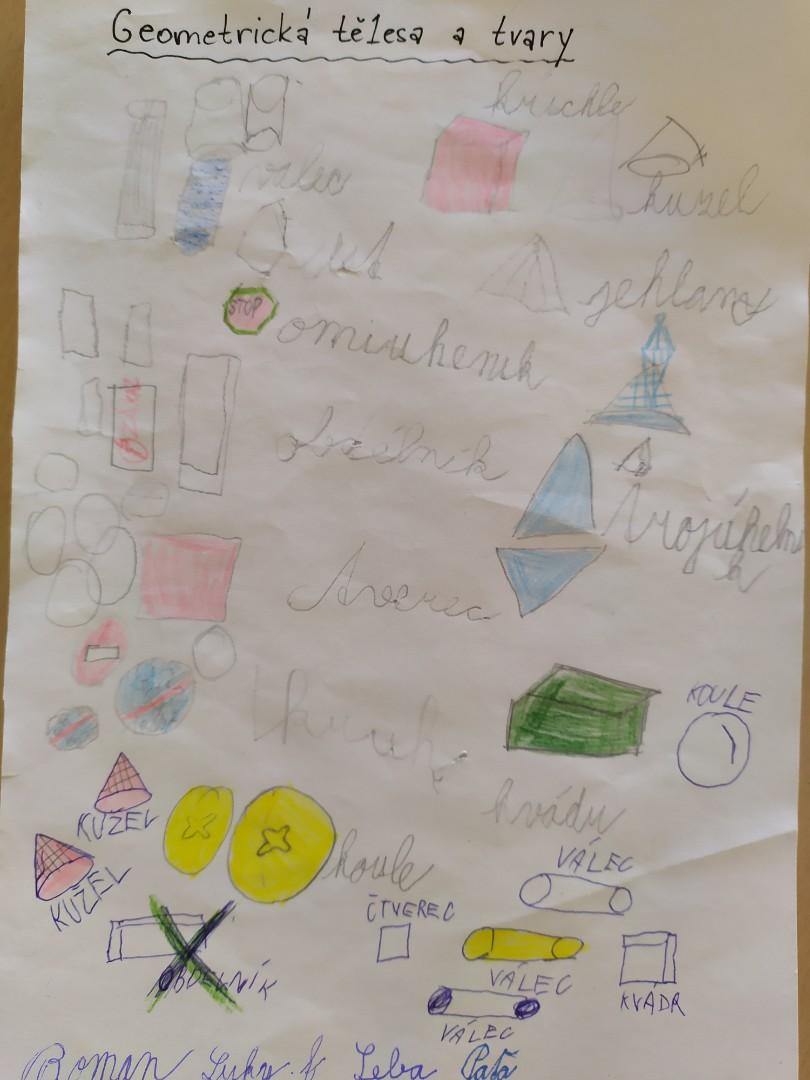 Geometrická tělesa a tvary
krichle
válec
kuzel
jehlany
STOP
omiuhenik
obdélník
trojúheln
k
čtverec
kruh
KOULE
kvádr
KUŽEL
koule
KUŽEL
VÁLEC
ČTVEREC
OBDELNÍK
VÁLEC
KVÁDR
VÁLEC
Roman